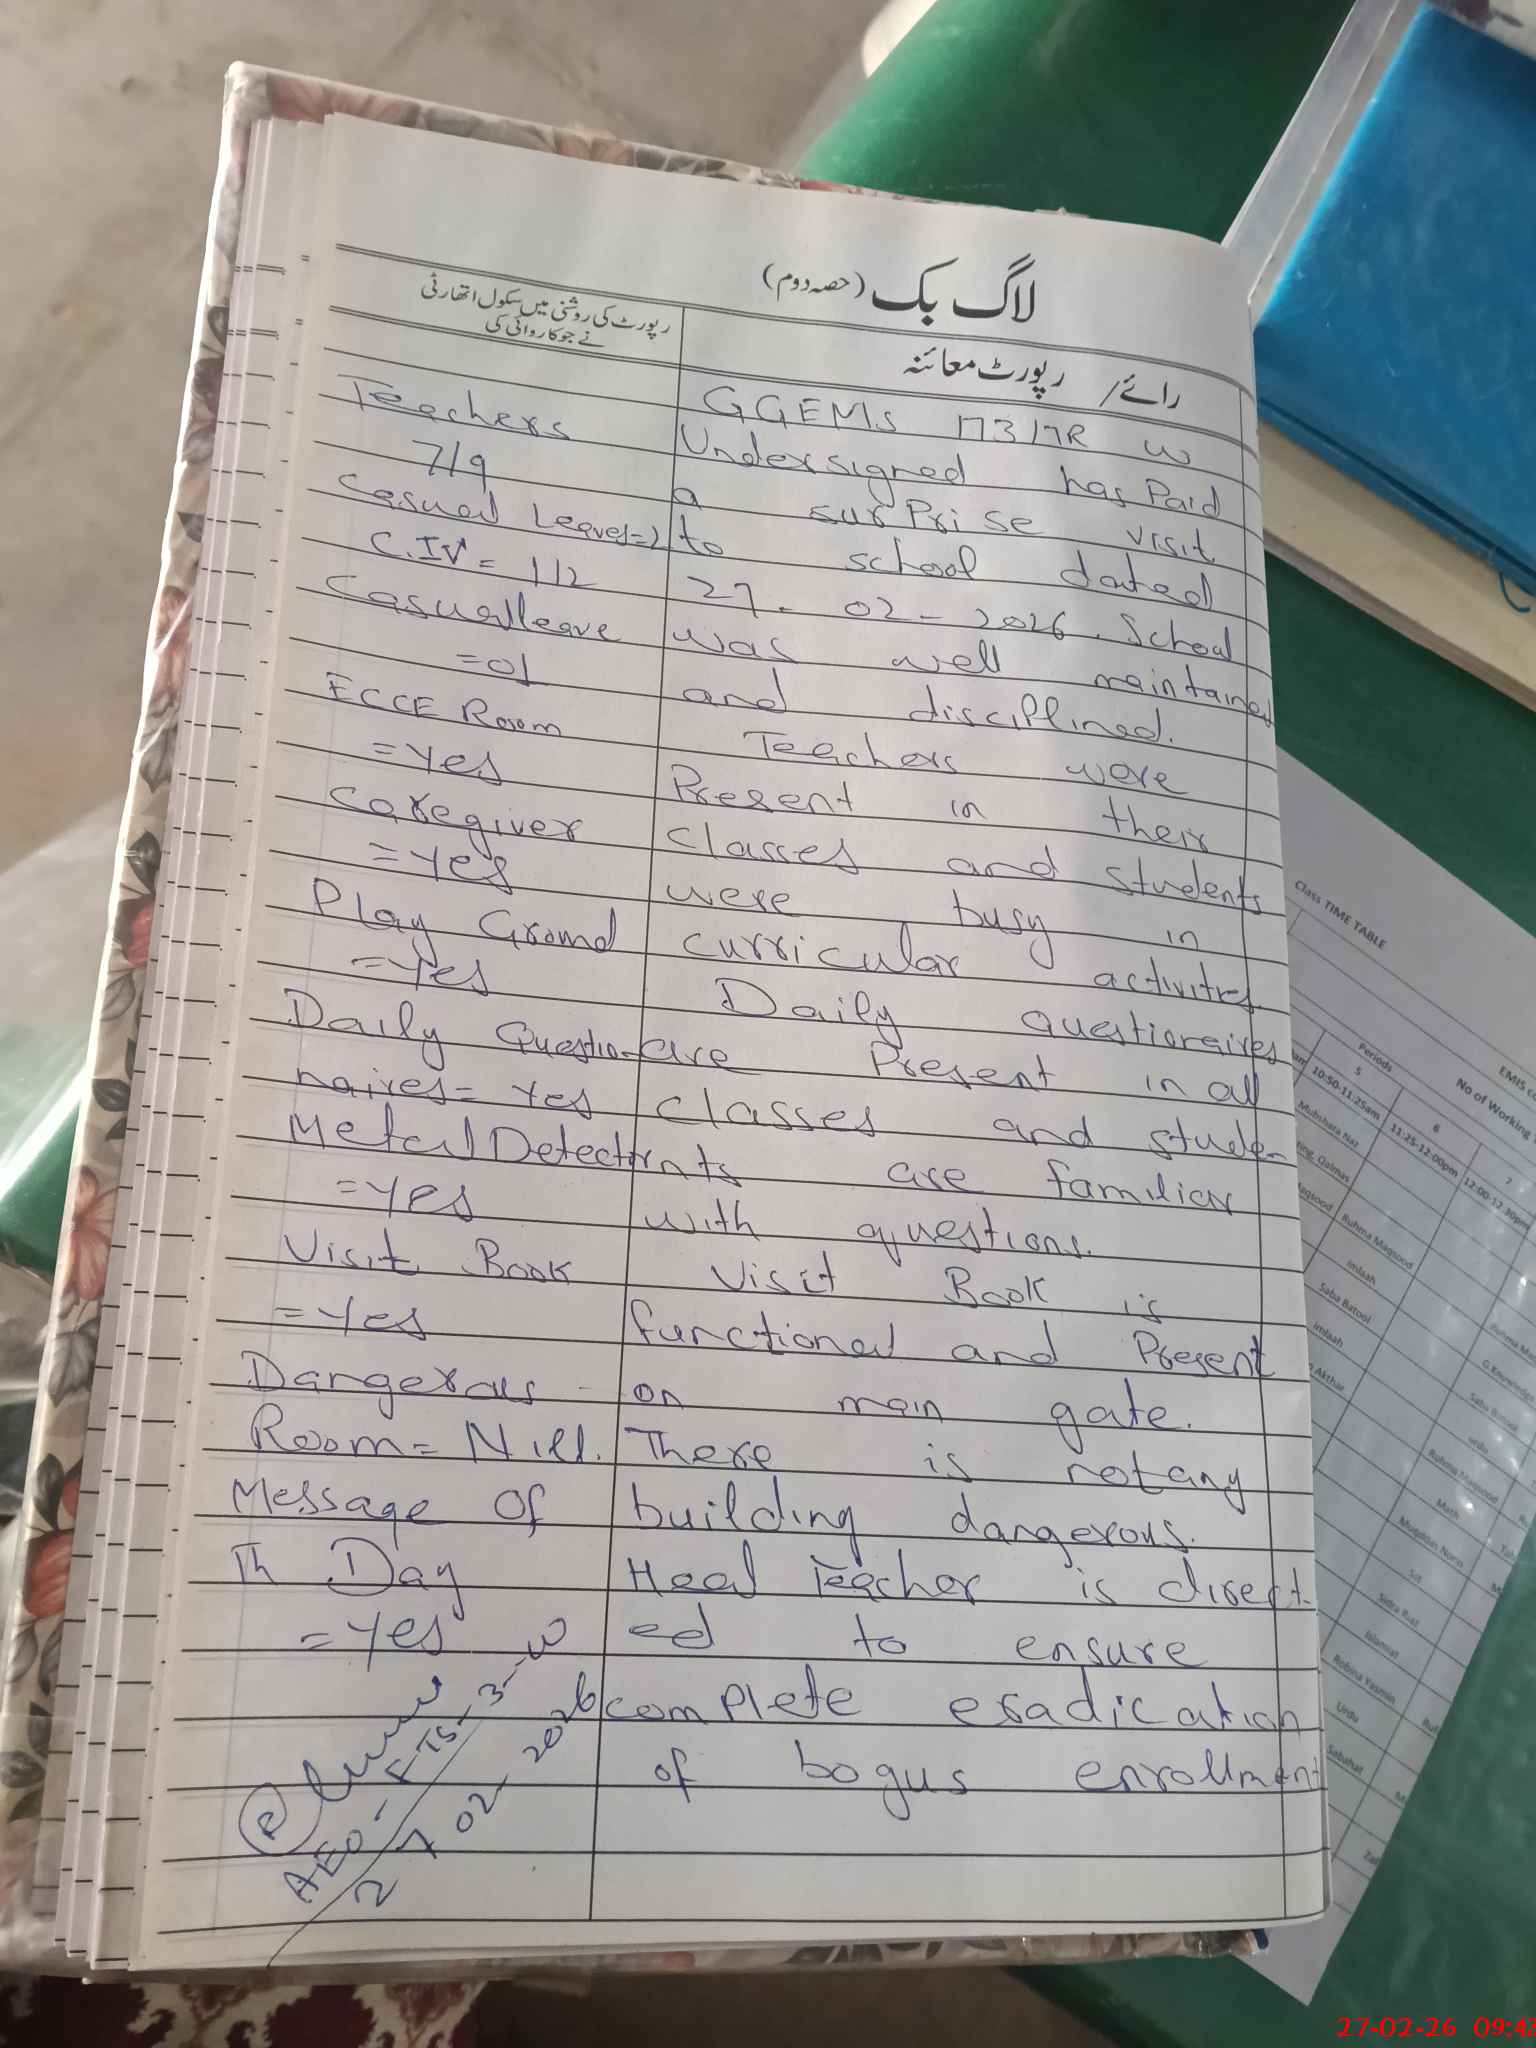 لاگ بک (حصہ دوم)
رپورٹ کی روشنی میں سکول اتھارٹی
نے جو کاروائی کی
رائے / رپورٹ معائنہ
GGEMS 173/7R W
Undersigned has Paid
a surPrise visit
to school dated
27-02-2026. School
was well maintained
and disciplined.
Teachers were
Present in their
classes and students
were busy in
curricular activities.
Daily questionaires
are Present in all
classes and stude-
nts are familiar
with questions.
Visit Book is
functional and Present
on main gate.
There is not any
building dangerous.
Head Teacher is direct-
ed to ensure
complete eradication
of bogus enrollment
Teachers
7/9
Casual Leaves=2
C.IV = 1/2
Casual leave
=01
ECCE Room
=Yes
Caregiver
=Yes
Play Ground
=Yes
Daily Questio-
naires= Yes
Metal Detector
=Yes
Visit Book
=Yes
Dangerous
Room= Nill.
Message Of
Th Day
=Yes
AEO-FTS-3-W
27-02-2026
Class TIME TABLE
EMIS
Periods
No of Working
5
6
7
10:50-11:25am
11:25-12:00pm
12:00-12:30pm
Mubshara Naz
Qalmas
Ruhma Maqsood
imlaah
Saba Batool
imlaah
Akthar
urdu
Ruhma Maqsood
Math
Muqddas Noris
Sst
Sidra Riaz
Islamiat
Robina Yasmin
Urdu
Sabahat
27-02-26 09:4